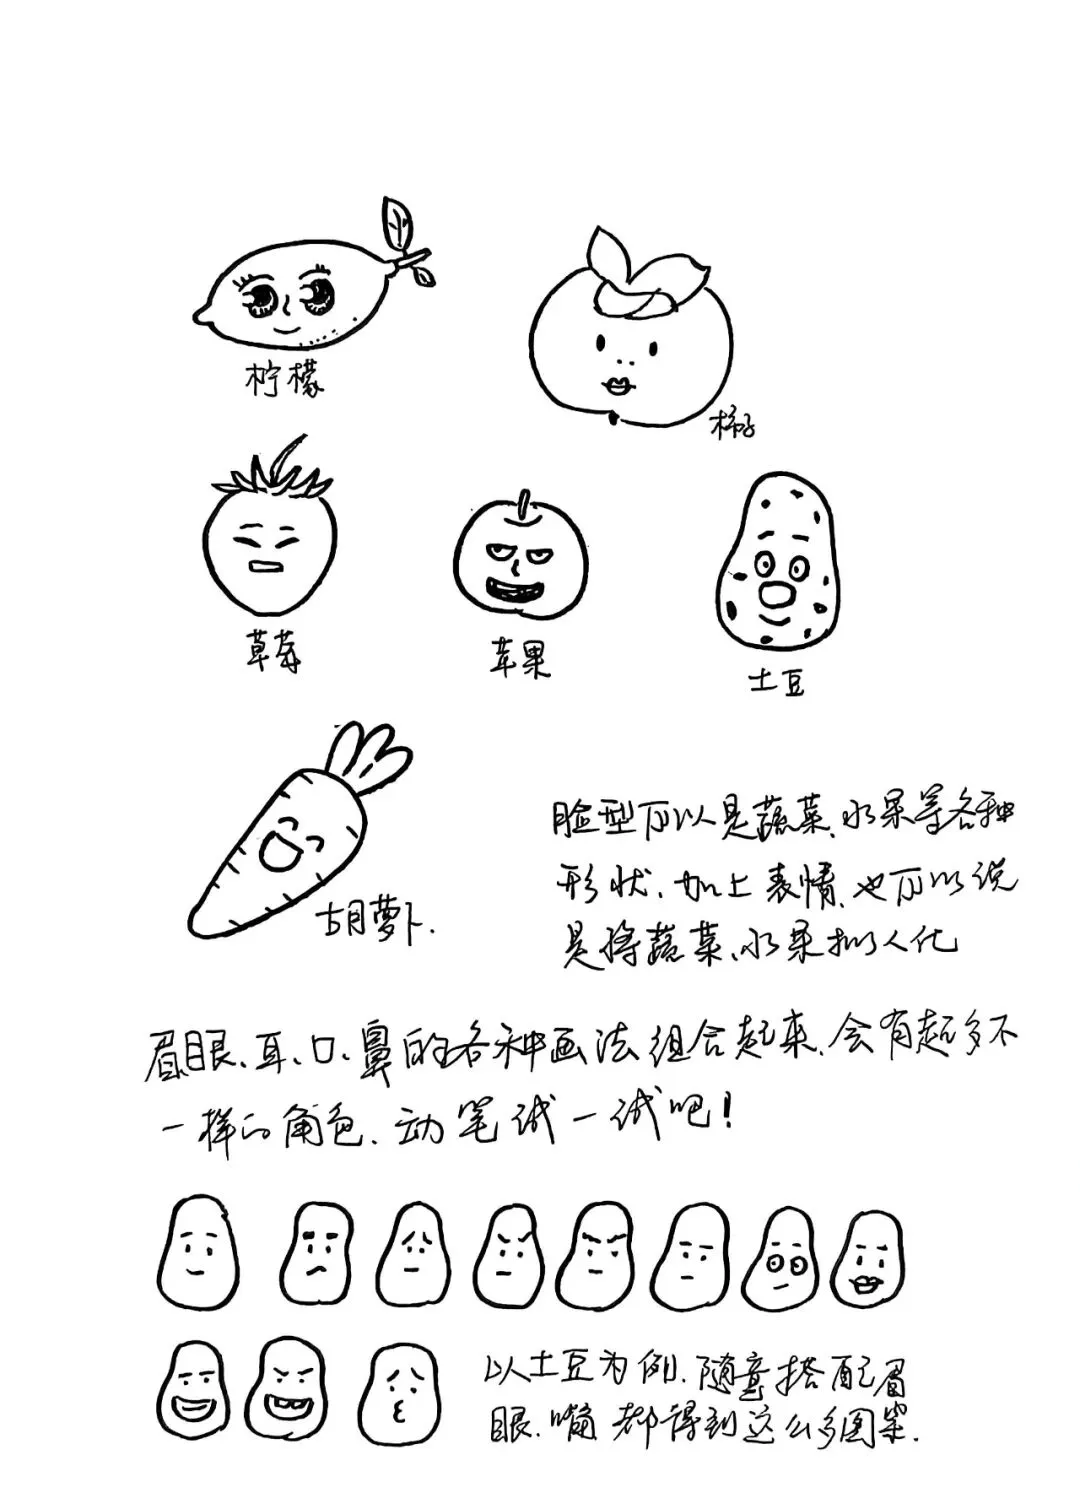 柠檬
柿子
草莓
苹果
土豆
胡萝卜.
脸型可以是蔬菜、水果等各种
形状、加上表情、也可以说
是将蔬菜、水果拟人化
眉眼、耳、口、鼻的各种画法组合起来、会有超多不
一样的角色、动笔试一试吧!
以土豆为例、随意搭配眉
眼、嘴、都得到这么多图案.